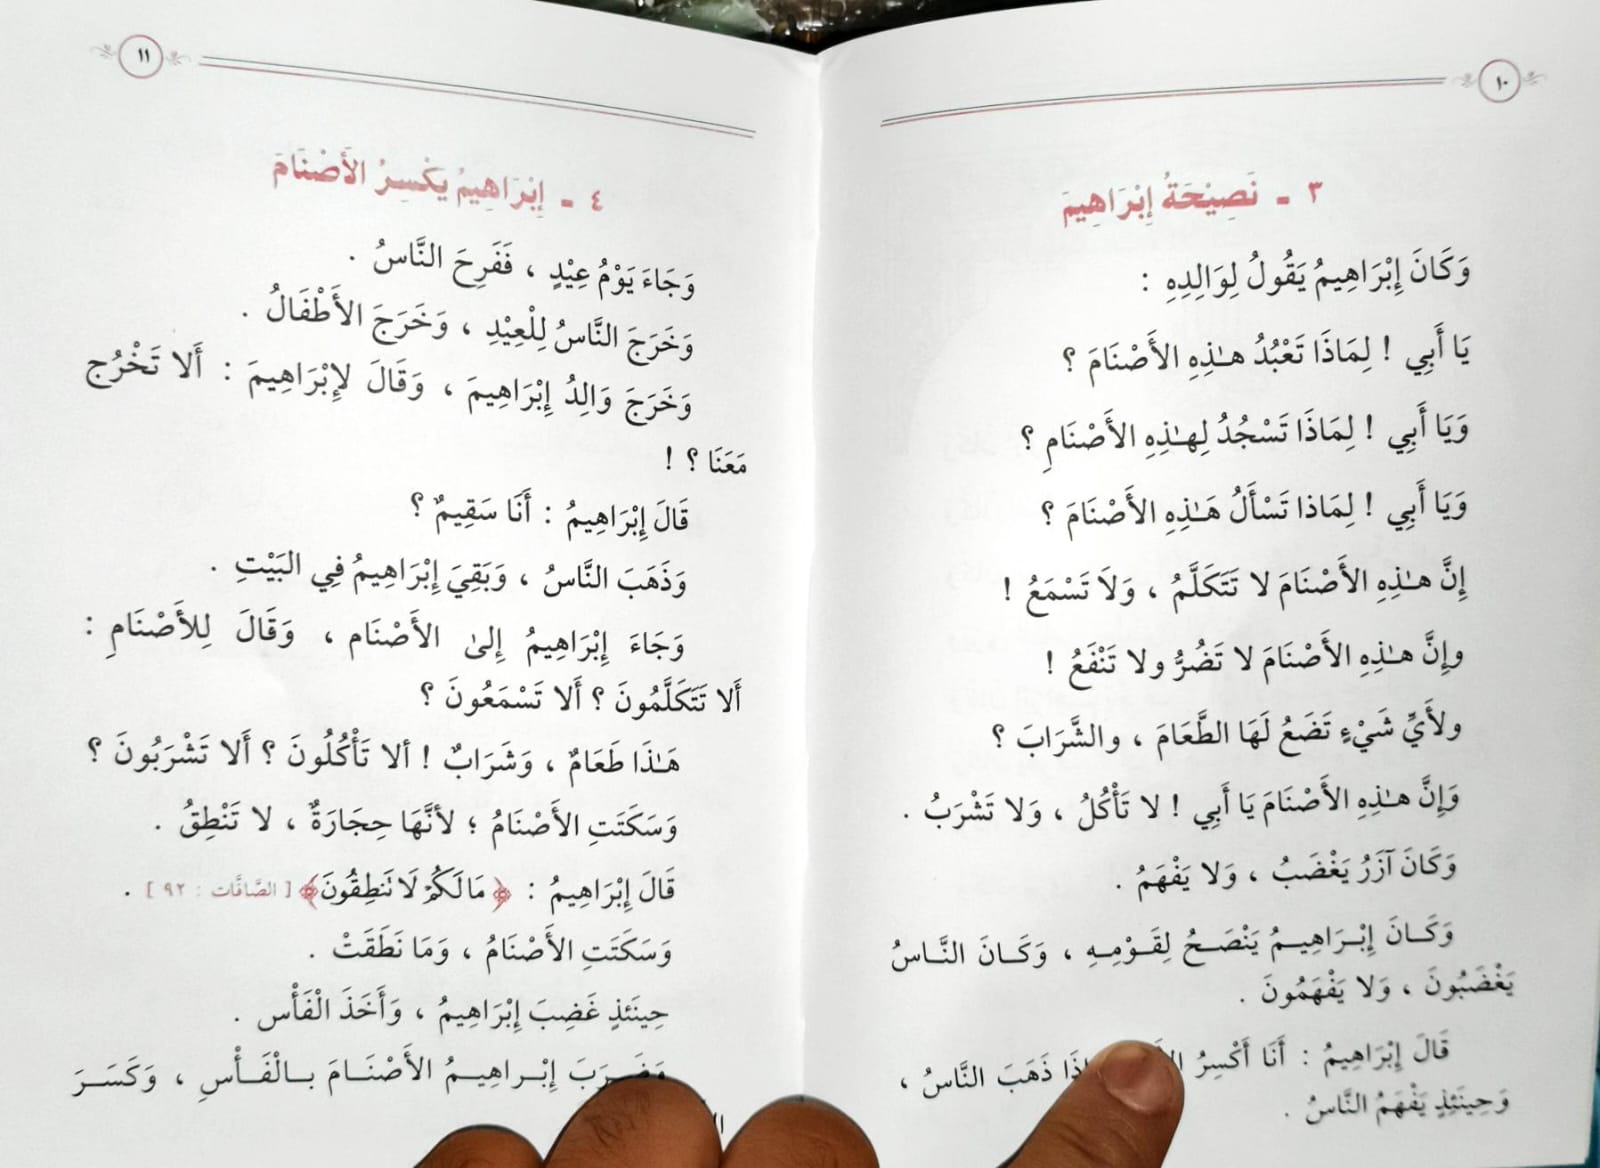 ١٠
٣ - نَصِيْحَةُ إِبْرَاهِيمَ
وَكَانَ إِبْرَاهِيمُ يَقُولُ لِوَالِدِهِ :
يَا أَبِي ! لِمَاذَا تَعْبُدُ هٰذِهِ الأَصْنَامَ ؟
وَيَا أَبِي ! لِمَاذَا تَسْجُدُ لِهٰذِهِ الأَصْنَامِ ؟
وَيَا أَبِي ! لِمَاذا تَسْأَلُ هَـٰذِهِ الأَصْنَامَ ؟
إِنَّ هٰذِهِ الأَصْنَامَ لا تَتَكَلَّمُ ، وَلَا تَسْمَعُ !
وإِنَّ هٰذِهِ الأَصْنَامَ لا تَضُرُّ ولا تَنْفَعُ !
ولأَيِّ شَيْءٍ تَضَعُ لَهَا الطَّعَامَ ، والشَّرَابَ ؟
وَإِنَّ هٰذِهِ الأَصْنَامَ يَا أَبِي ! لا تَأْكُلُ ، وَلا تَشْرَبُ .
وَكَانَ آزَرُ يَغْضَبُ ، وَلا يَفْهَمُ .
وَكَـانَ إِبْـرَاهِيـمُ يَنْصَـحُ لِقَـوْمِـهِ ، وَكَـانَ النَّـاسُ
يَغْضَبُونَ ، وَلا يَفْهَمُونَ .
قَالَ إِبْرَاهِيمُ : أَنَا أَكْسِرُ ذَهَبَ النَّاسُ ،
وَحِينَئِذٍ يَفْهَمُ النَّاسُ .
١١
٤ - إِبْرَاهِيمُ يَكْسِرُ الأَصْنَامَ
وَجَاءَ يَوْمُ عِيْدٍ ، فَفَرِحَ النَّاسُ .
وَخَرَجَ النَّاسُ لِلْعِيْدِ ، وَخَرَجَ الأَطْفَالُ .
وَخَرَجَ وَالِدُ إِبْرَاهِيمَ ، وَقَالَ لإِبْرَاهِيمَ : أَلا تَخْرُج
مَعَنَا ؟ !
قَالَ إِبْرَاهِيمُ : أَنَا سَقِيمٌ ؟
وَذَهَبَ النَّاسُ ، وَبَقِيَ إِبْرَاهِيمُ فِي البَيْتِ .
وَجَاءَ إِبْرَاهِيمُ إِلىٰ الأَصْنَام ، وَقَالَ لِلأَصْنَامِ :
أَلا تَتَكَلَّمُونَ ؟ أَلا تَسْمَعُونَ ؟
هَـٰذَا طَعَامٌ ، وَشَرَابٌ ! ألا تَأْكُلُونَ ؟ أَلا تَشْرَبُونَ ؟
وَسَكَتَتِ الأَصْنَامُ ؛ لأنَّهَا حِجَارَةٌ ، لا تَنْطِقُ .
قَالَ إِبْرَاهِيمُ : ﴿ مَا لَكُمْ لَا تَنطِقُونَ ﴾ [ الصَّافَّات : ٩٢ ] .
وَسَكَتَتِ الأَصْنَامُ ، وَمَا نَطَقَتْ .
حِينَئذٍ غَضِبَ إِبْرَاهِيمُ ، وَأَخَذَ الْفَأْس .
وَضَـرَبَ إِبْـراهِيـمُ الأَصْنَـامَ بـالْفَـأْسِ ، وَكَسَـرَ